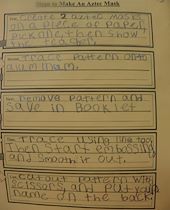 Steps to Make An Aztec Mask
Create 2 aztec masks
on a piece of paper
pick one, then show
the teacher.
Trace pattern onto
aluminum.
Remove pattern and
save in booklet
Trace using line tool
Then start embossing
and smooth it out.
Cut out pattern with
scissors, and put your
name on the back.